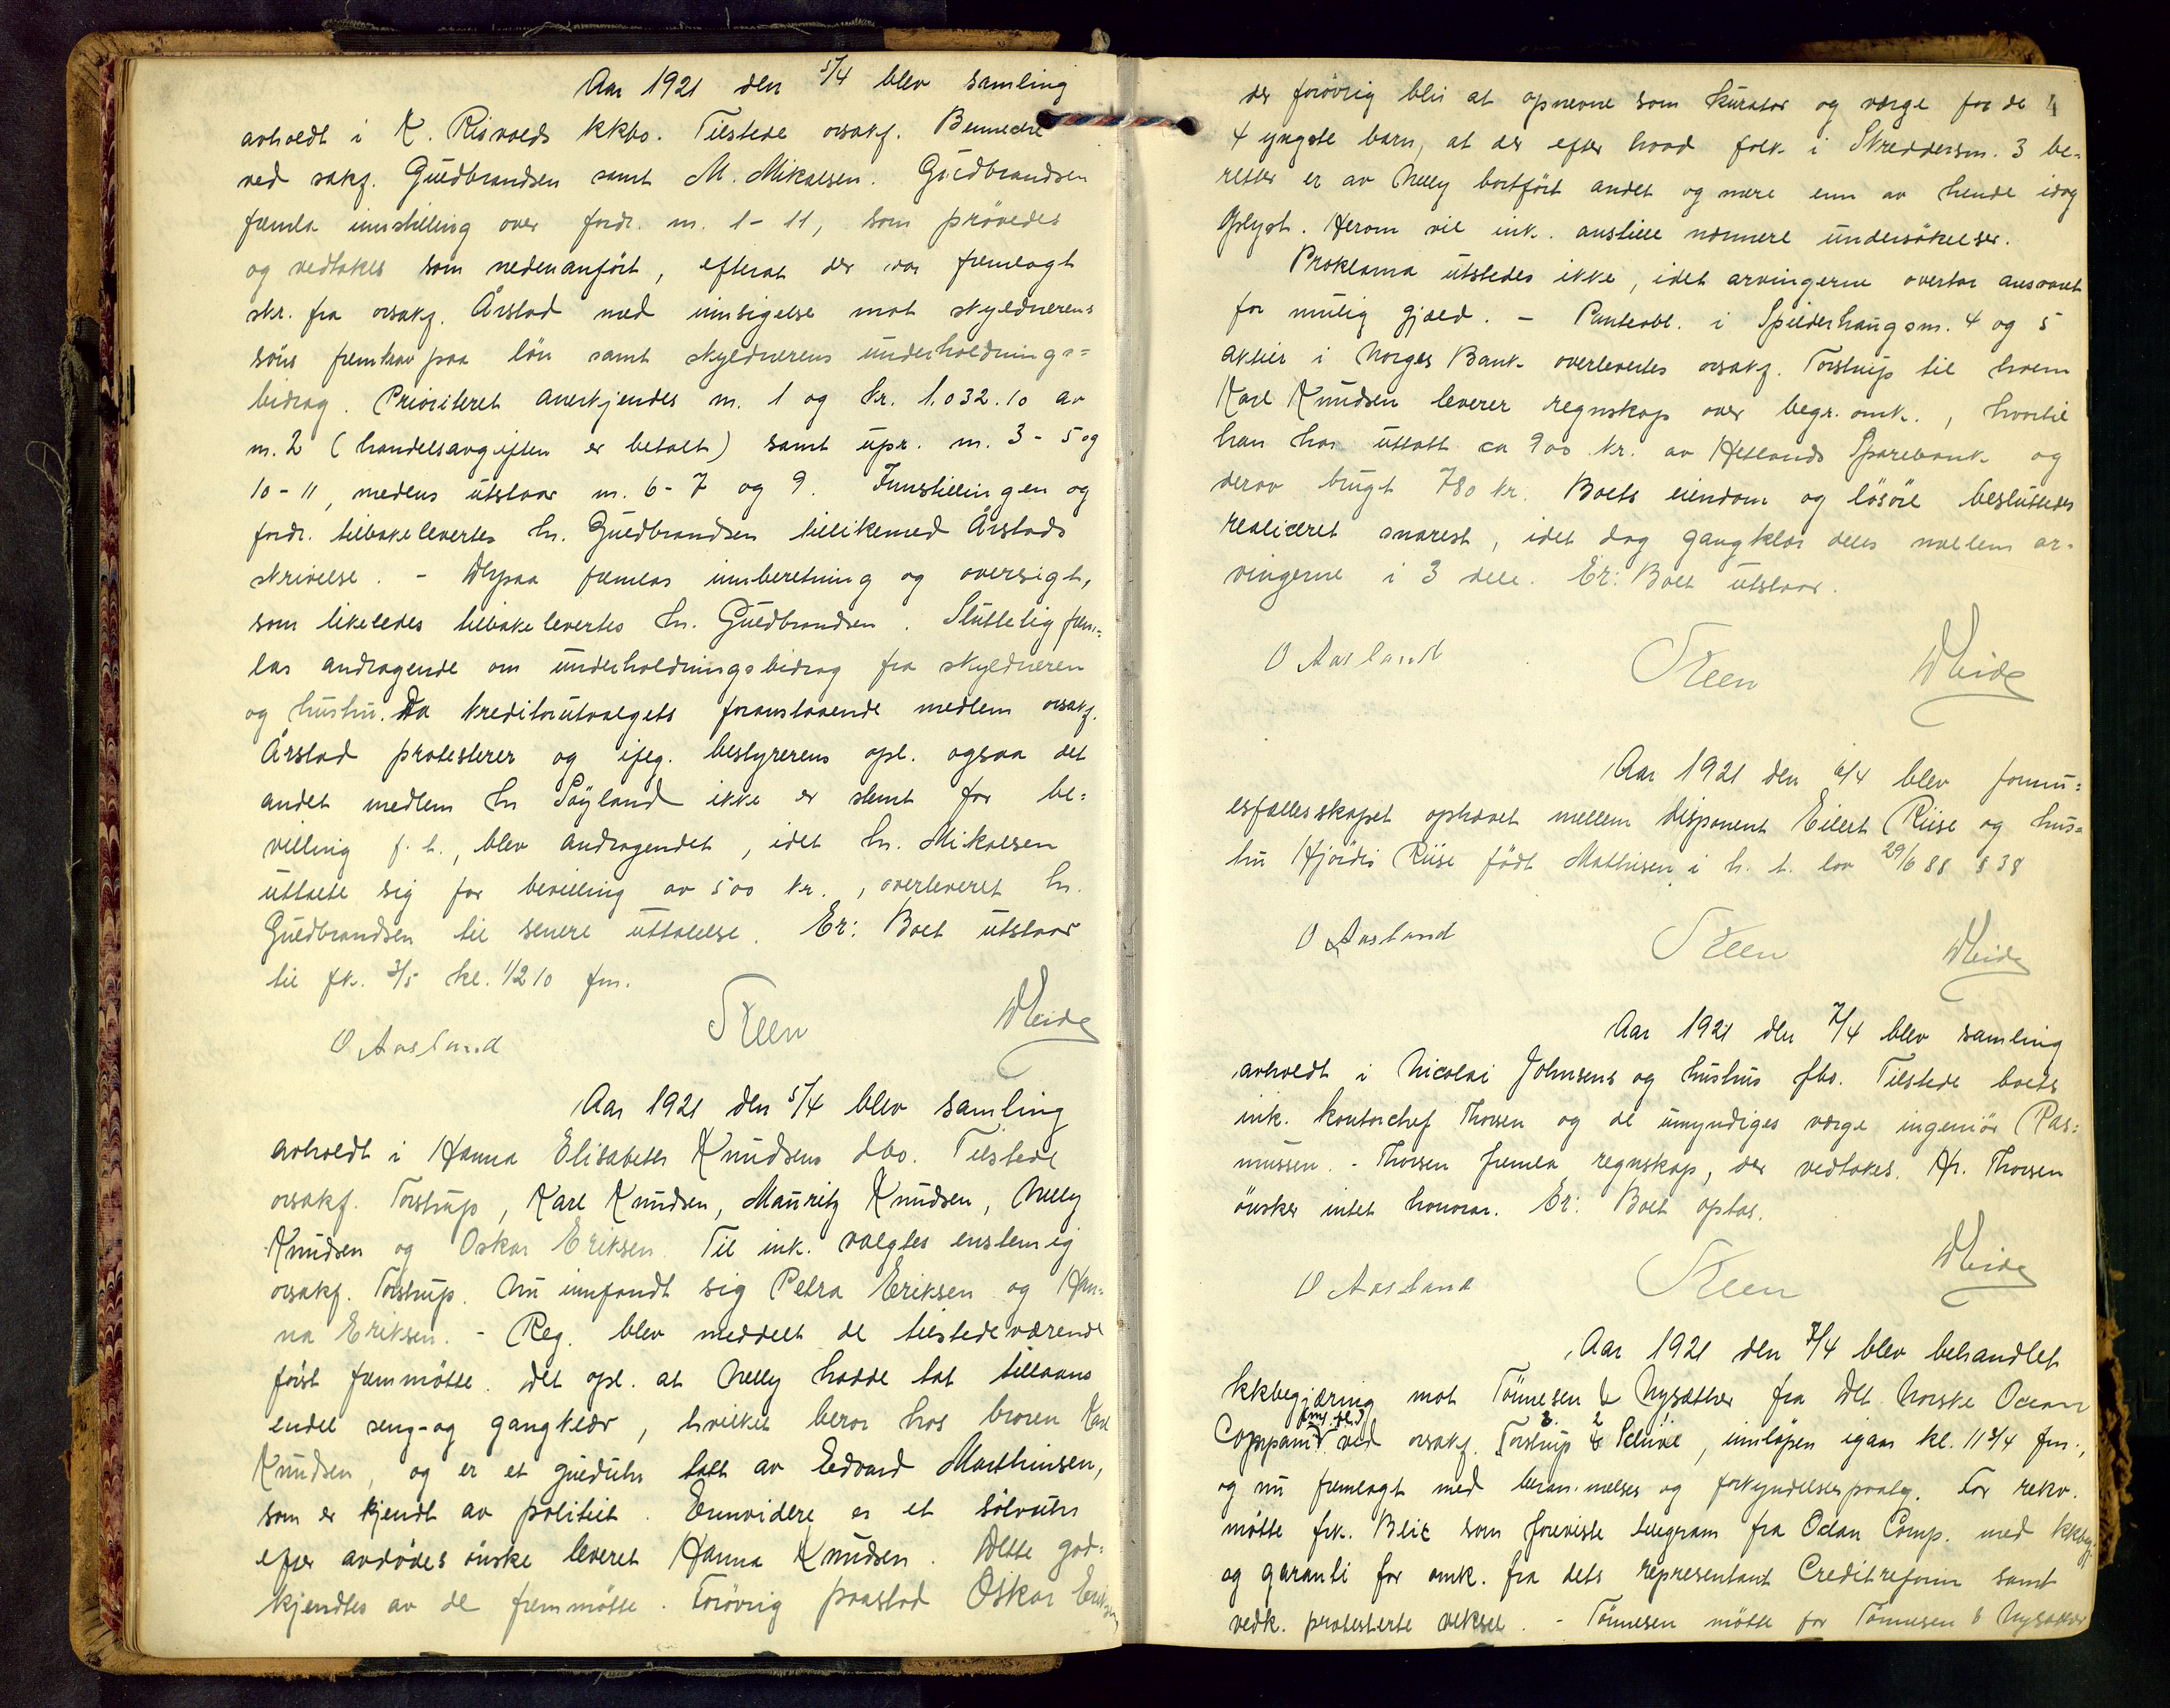 Aar 1921 den 5/4 blev samling
avholdt i K. Risvolds kkbo. Tilstede osakf.
ved sakf. Gudbrandsen samt M. Mikalsen. Gudbrandsen
fremla innstilling over fordr. nr. 1-11, som prövedes
og vedtokes som nedenanført, efterat der var fremlagt
skr. fra osakf. Årstad med innsigelse mot skyldnerens
söns fremkrav paa lön samt skyldnerens underholdnings=
bidrag. Prioritert anerkjendes nr. 1 og kr. 1.032.10 av
nr. 2 (handelsavgiften er betalt) samt upr. nr. 3-5 og
10-11, medens utstaar nr. 6-7 og 9. Innstillingen og
fordr. tilbakelevertes hr. Gudbrandsen tillikemed Årstads
skrivelse. - Derpaa fremlas innberetning og oversigt,
som likeledes tilbakelevertes hr. Gudbrandsen. Sluttelig frem=
las andragende om underholdningsbidrag fra skyldneren
og hustru. Da kreditorutvalgets foranstaaende medlem osakf.
Årstad protesterer og ifeg. bestyrerens opl. ogsaa det
andet medlem hr Söyland ikke er stemt for be=
villing f. t., blev andragendet, idet hr. Mikalsen
uttalte sig for bevilling av 500 kr., overleveret hr.
Gudbrandsen til senere uttalelse. Er: Boet utstaar
til fk. 3/5 kl. 1/2 10 fm.
O Aasland Steen Heide
Aar 1921 den 5/4 blev samling
avholdt i Hanna Elisabeth Knudsens dbo. Tilstede
osakf. Torstrup, Karl Knudsen, Mauritz Knudsen, Nelly
Knudsen og Oskar Eriksen. Til ink. valgtes enstemig
osakf. Torstrup. Nu innfandt sig Petra Eriksen og Han=
na Eriksen. - Reg. blev meddelt de tilstedeværende
först fremmötte. Det opl. at Nelly hadde tat tillaans
endel seng- og gangklær, hvilket beror hos broren Karl
Knudsen, og er et guldulr tatt av Edvard Mathinsen,
som er kjendt av politiet. Ennvidere er et sölvulr
efter avdödes önske leveret Hanna Knudsen. Dette god=
kjendtes av de fremmötte. Forövrig paastod Oskar Eriksen
der forövrig blir at opnevne som kurator og værge for de
4 yngste barn, at der efter hvad folk i Skreddersm. 3 be=
retter er av Nelly bortfört andet og mere enn av hende idag
oplyst. Herom vil ink. anstille nærmere undersökelser.
Proklama utstedes ikke, idet arvingerne overtar ansvaret
for mulig gjæld. - Panteobl. i Spilderhaugsm. 4 og 5
aktier i Norges Bank overlevertes osakf. Torstrup til hvem
Karl Knudsen leverer regnskap over begr. omk., hvortil
han har uttatt ca 900 kr. av Hetlands Sparebank og
derav brugt 780 kr. Boets eiendom og lösöre besluttedes
realiceret snarest, idet dog gangklær deles mellem ar=
vingerne i 3 dele. Er: Boet utstaar.
O Aasland Steen Heide
Aar 1921 den 6/4 blev formu=
esfællesskapet ophævet mellem disponent Eilert Riise og hus=
tru Hjördis Riise födt Mathisen i h. t. lov 29/6 88 § 38
O Aasland Steen Heide
Aar 1921 den 7/4 blev samling
avholdt i Nicolai Johnsens og hustrus fbo. Tilstede boets
ink. kontorchef Thorsen og de umyndiges værge ingeniör Ras=
mussen. - Thorsen fremla regnskap, der vedtokes. Hr. Thorsen
önsker intet honorar. Er: Boet optas.
O Aasland Steen Heide
Aar 1921 den 7/4 blev behandlet
kkbegjæring mot Tönnesen & Nysæther fra Det Norske Ocean
Compani ved osakf. Torstrup & Schive, innlöpen igaar kl. 11 3/4 fm.,
og nu fremlagt med beram.melses og forkyndelsespaateg. For rekv.
mötte frk. Blix som foreviste telegram fra Ocean Comp. med kkbegj.
og garanti for omk. fra dets representant Creditreform samt
vedk. protesterte veksel. - Tönnesen mötte for Tönnesen & Nysæther